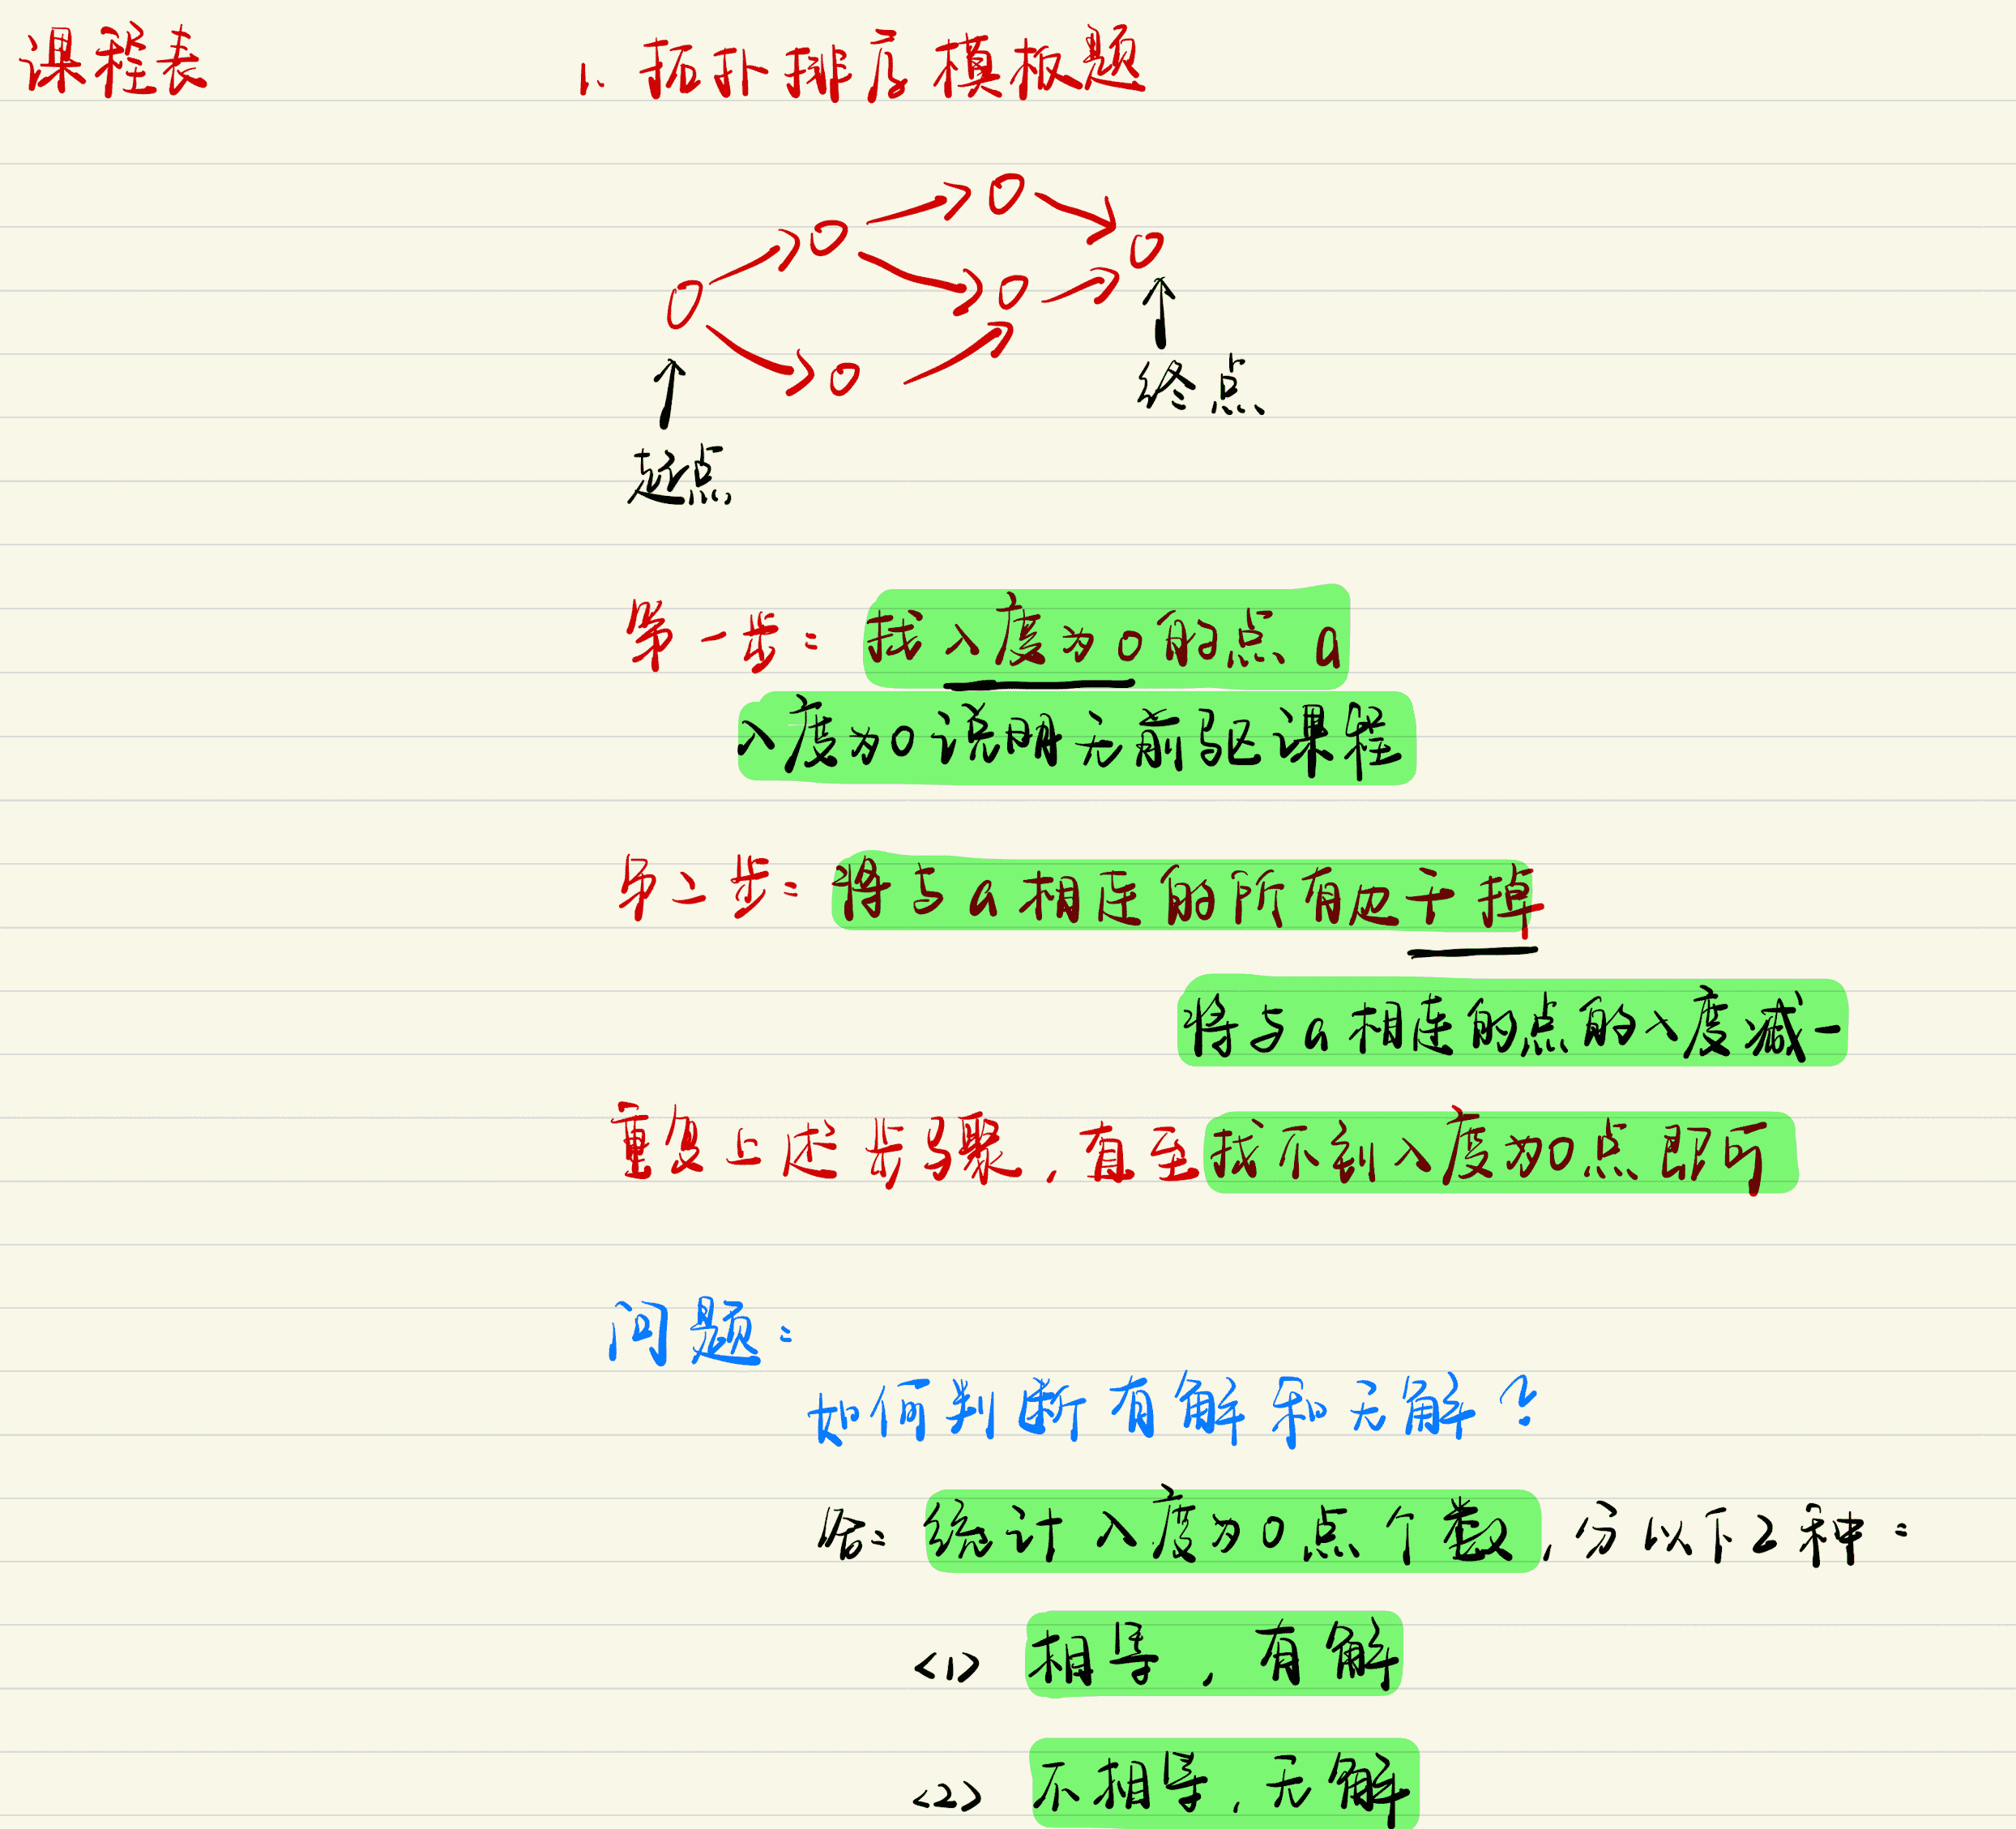 课程表
1. 拓扑排序模板题
终点
起点
第一步: 找入度为0的点 a
入度为0说明无前驱课程
第二步: 将与a相连的所有边干掉
将与a相连的点的入度减一
重复上述步骤, 直至找不到入度为0点即可
问题:
如何判断有解和无解?
答: 统计入度为0点个数, 分以下2种:
<1> 相等, 有解
<2> 不相等, 无解